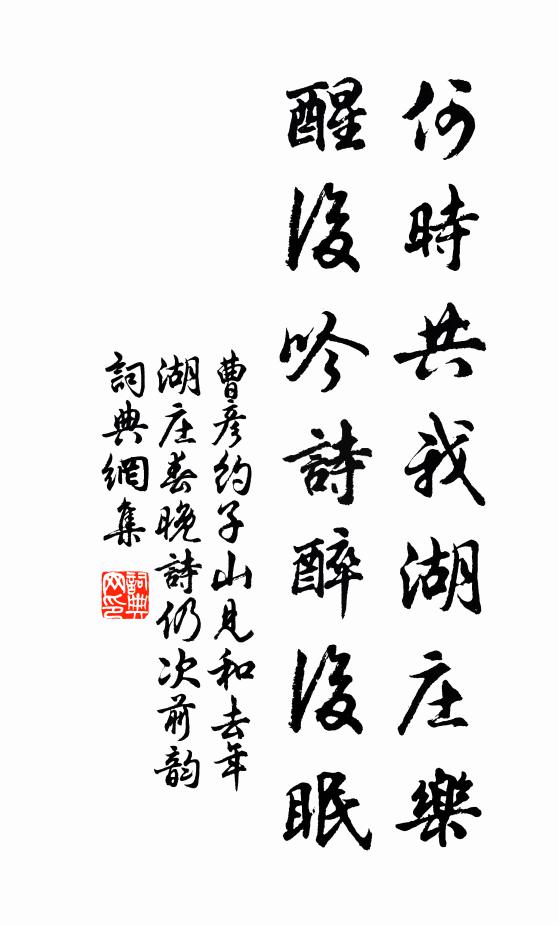 何時共我湖庄樂
醒後吟詩醉後眠
曹彦約子山見和去年
湖庄春晚詩仍次前韵
詞典網集
詞典
网印